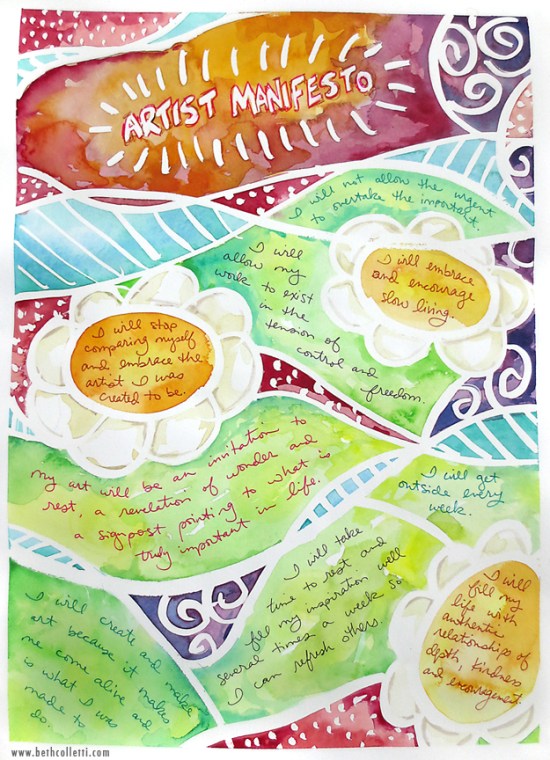 ARTIST MANIFESTO
I will not allow the urgent
to overtake the important.
I will
allow my
work to exist
in the
tension of
control and
freedom.
I will embrace
and encourage
slow living.
I will stop
comparing myself
and embrace the
artist I was
created to be.
my art will be an invitation to
rest, a revelation of wonder and
a signpost, pointing to what is
truly important in life.
I will get
outside every
week.
I will take
time to rest and
fill my inspiration well
several times a week so
I can refresh others.
I will
fill my
life with
authentic
relationships of
depth, kindness
and encouragement.
I will create and make
art because it makes
me come alive and
is what I was
made to
do.
www.bethcolletti.com